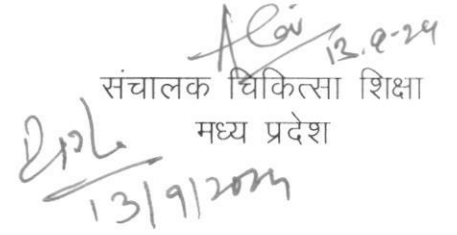 13.9-24
संचालक चिकित्सा शिक्षा
मध्य प्रदेश
13/9/2024